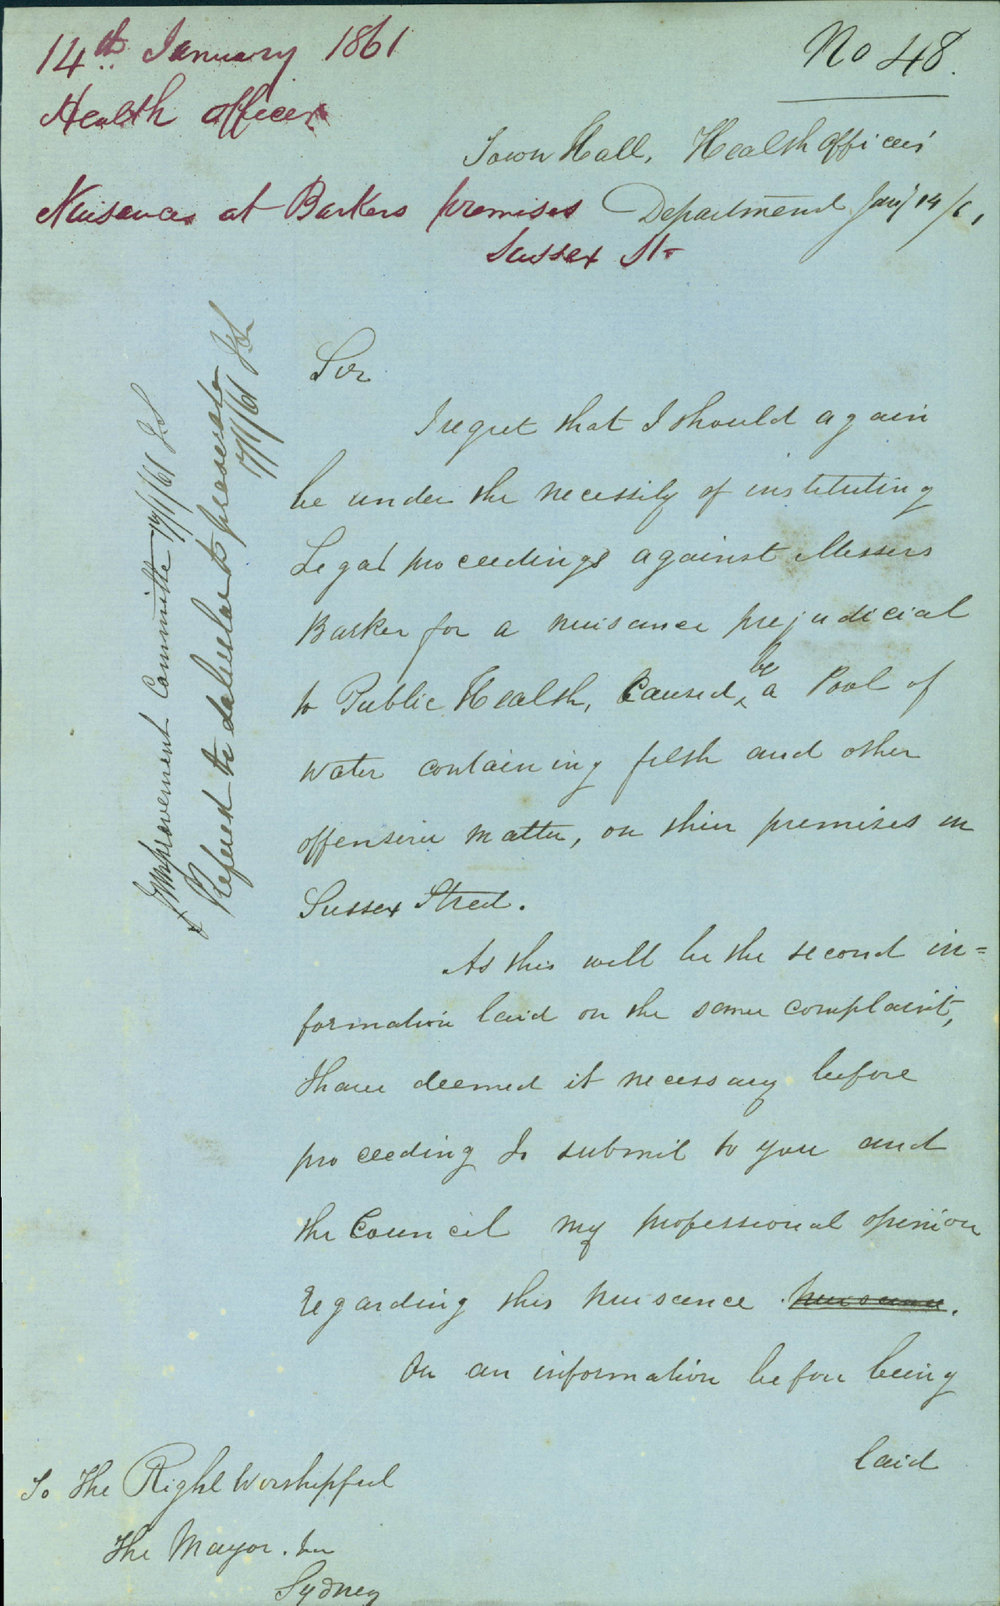 14th January 1861
No 48.
Health officer
Town Hall, Health Officers'
Nuisances at Barkers premises
Department Jany 14/61
Sussex St
Improvement Committee 14/1/61
Refered to to prosecute
17/1/61
Sir
I regret that I should again
be under the necessity of instituting
Legal proceedings against Messers
Barker for a nuisance prejudicial
to Public Health, Caused, by a Pool of
water containing filth and other
offensive matter, on their premises in
Sussex Street.
As this will be the second in=
formation laid on the same complaint,
I have deemed it necessary before
proceeding to submit to you and
the Council my professional opinion
regarding this nuisance nuisance.
On an information before being
laid
To The Right Worshipful
The Mayor.
Sydney